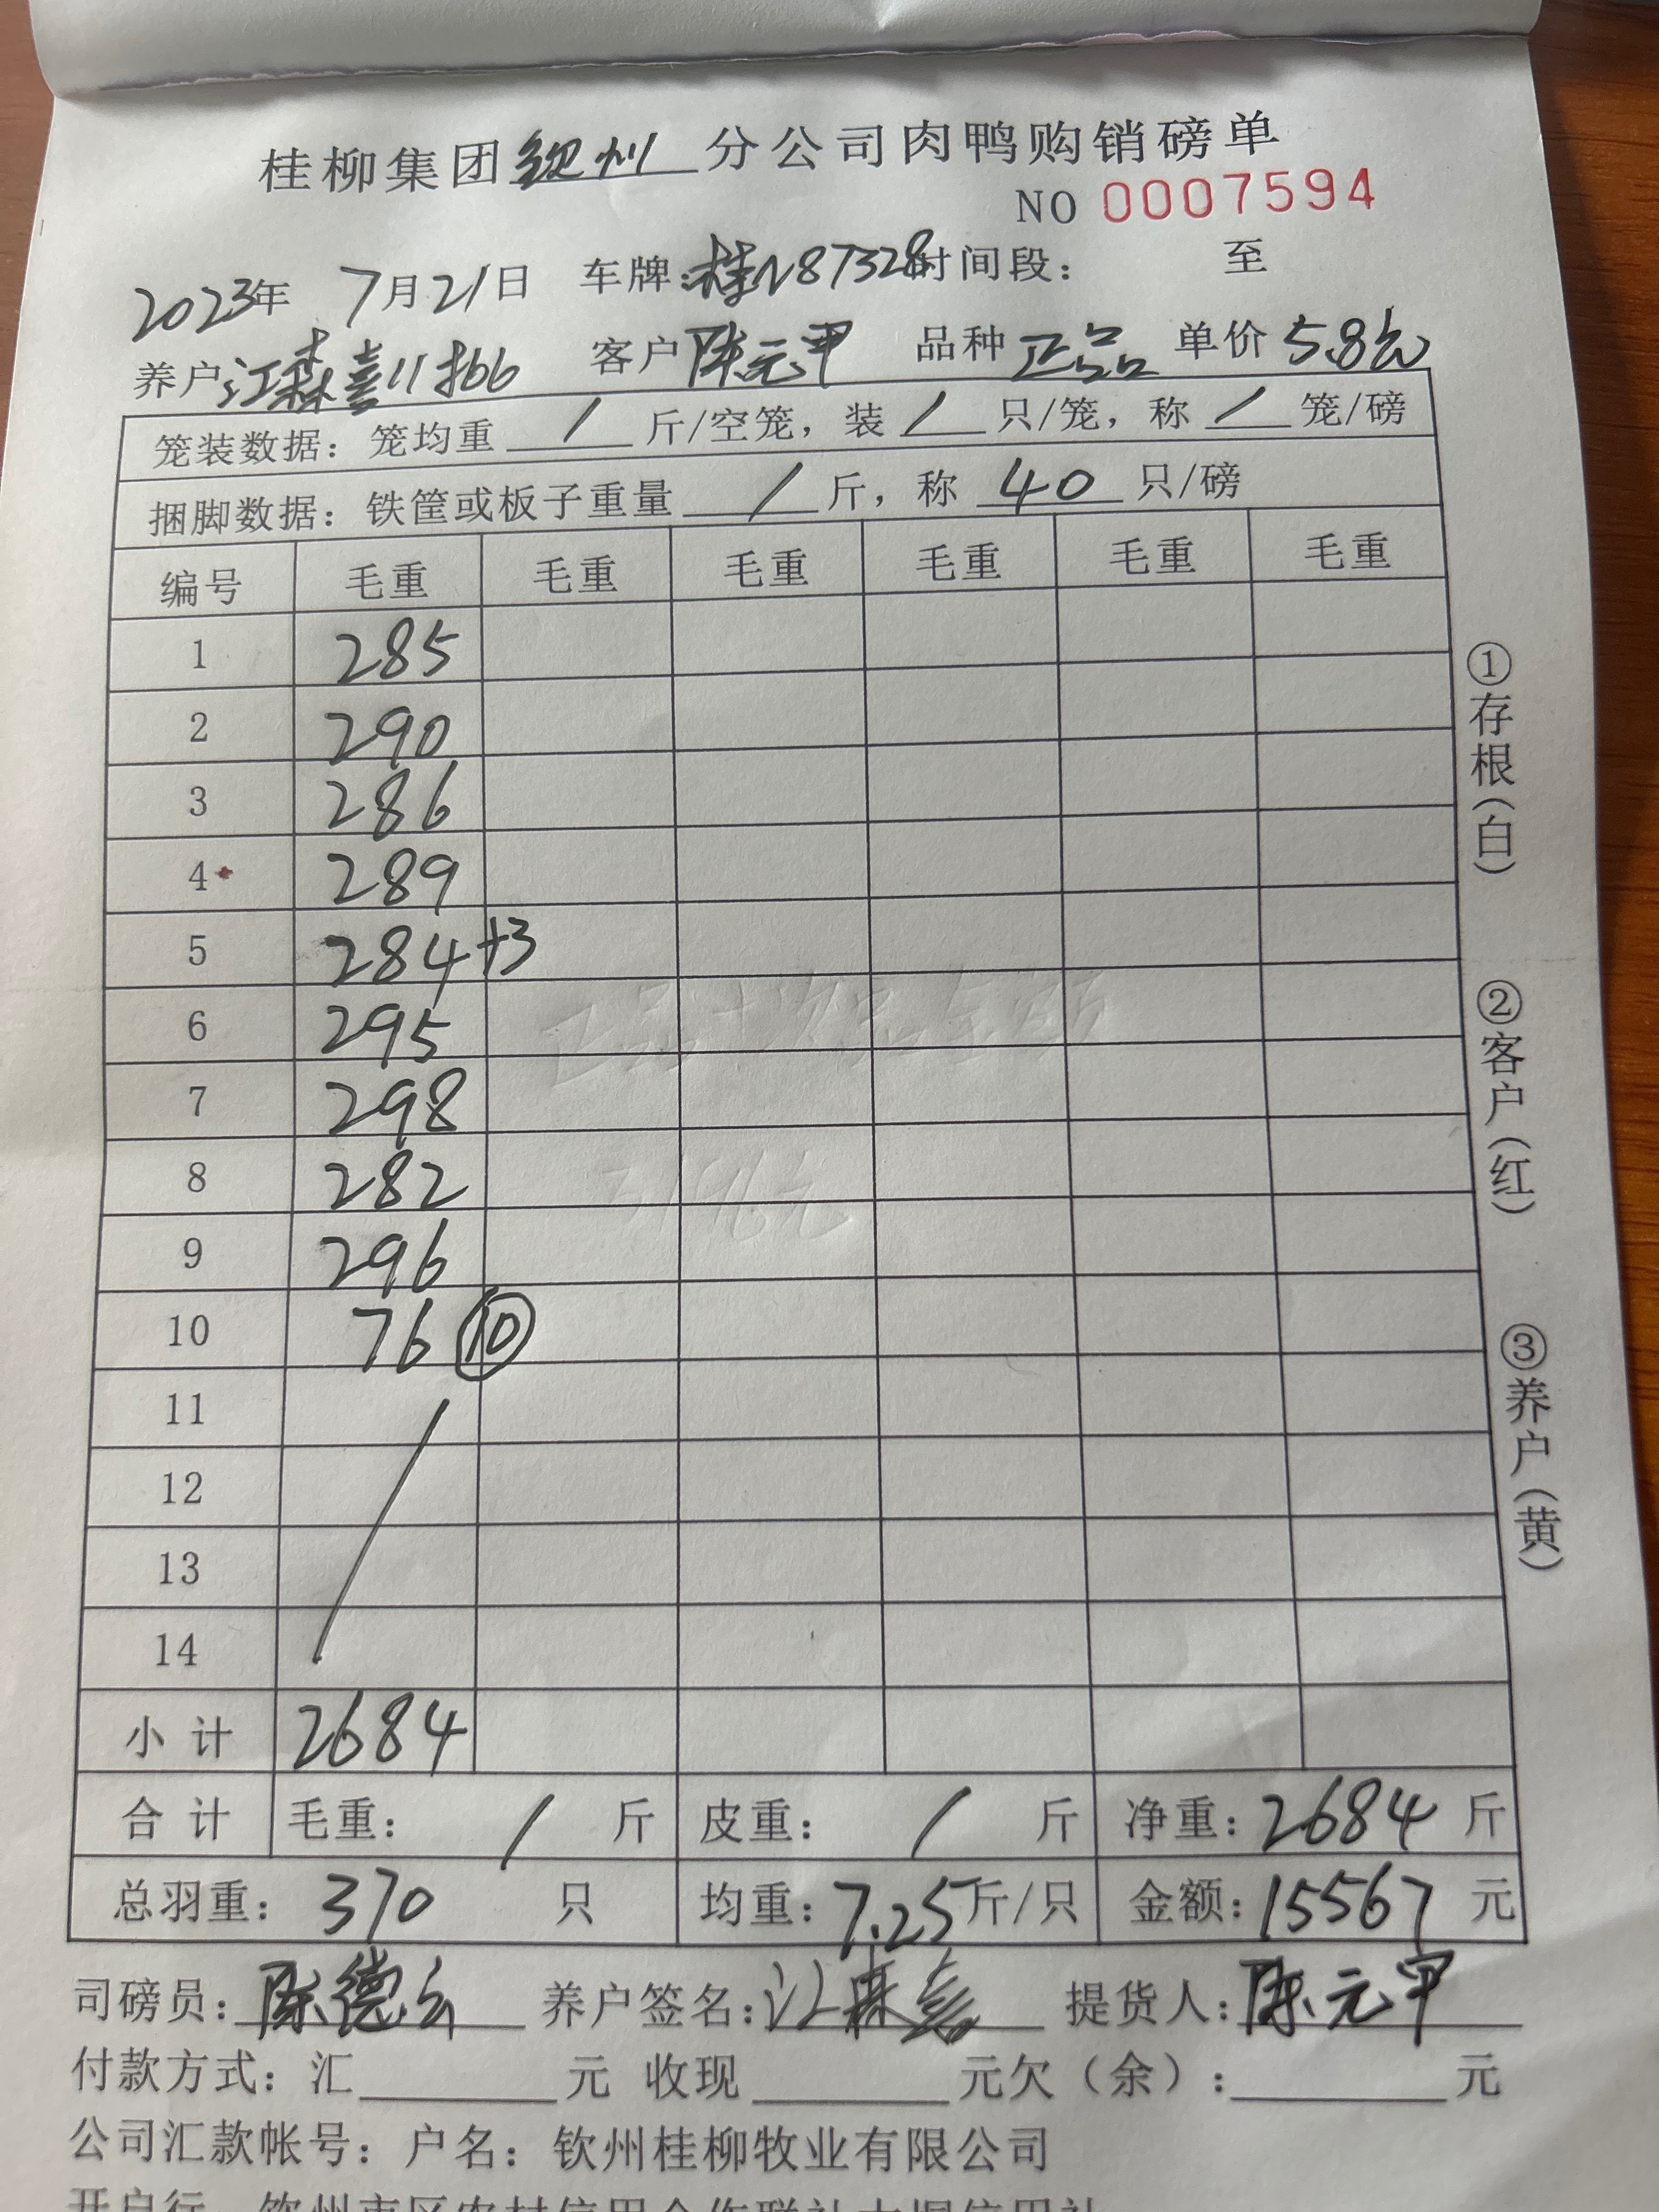 桂柳集团钦州分公司肉鸭购销磅单
NO 0007594
2023年 7月21日 车牌:桂N87328时间段: 至
养户江森喜11批66 客户陈元甲 品种正品 单价5.8元
笼装数据: 笼均重 / 斤/空笼, 装 / 只/笼, 称 / 笼/磅
捆脚数据: 铁筐或板子重量 / 斤, 称 40 只/磅
编号 毛重 毛重 毛重 毛重 毛重 毛重
1 285
2 290
3 286
4 289
5 284+3
6 295
7 298
8 282
9 296
10 76 ⑩
11
12
13
14
小计 2684
合计 毛重: / 斤 皮重: / 斤 净重:2684斤
总羽重: 370 只 均重:7.25斤/只 金额:15567元
司磅员:陈德云 养户签名:江森喜 提货人:陈元甲
付款方式: 汇 元 收现 元欠(余): 元
公司汇款帐号: 户名: 钦州桂柳牧业有限公司
①存根(白)
②客户(红)
③养户(黄)